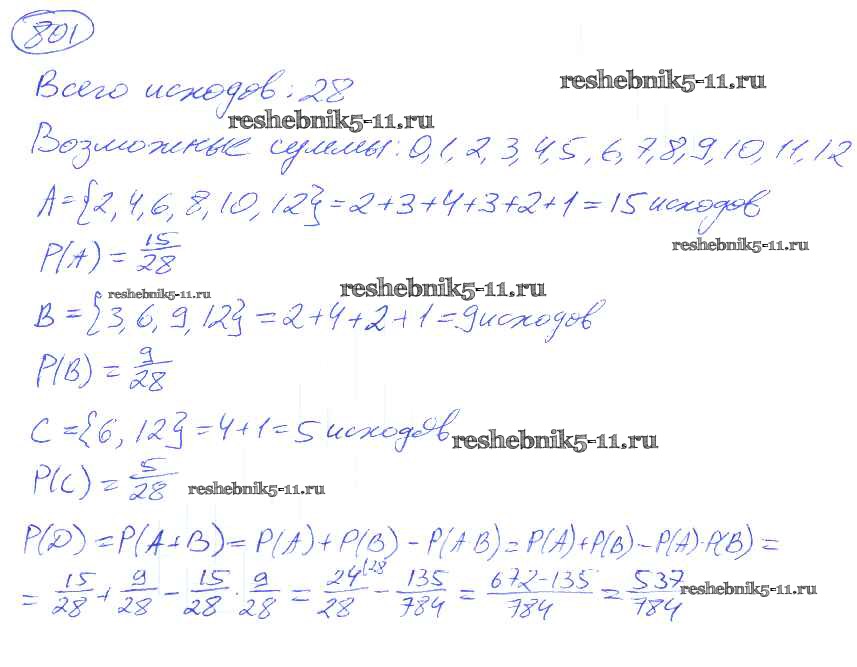 801
reshebnik5-11.ru
Всего исходов: 28
reshebnik5-11.ru
Возможные суммы: 0, 1, 2, 3, 4, 5, 6, 7, 8, 9, 10, 11, 12
A = {2, 4, 6, 8, 10, 12} = 2+3+4+3+2+1 = 15 исходов
reshebnik5-11.ru
P(A) = 15/28
reshebnik5-11.ru
reshebnik5-11.ru
B = {3, 6, 9, 12} = 2+4+2+1 = 9 исходов
P(B) = 9/28
C = {6, 12} = 4+1 = 5 исходов
reshebnik5-11.ru
P(C) = 5/28
reshebnik5-11.ru
P(D) = P(A+B) = P(A) + P(B) - P(AB) = P(A) + P(B) - P(A)·P(B) =
= 15/28 + 9/28 - 15/28 · 9/28 = 24/28 (28 - 135/784 = 672-135/784 = 537/784
reshebnik5-11.ru